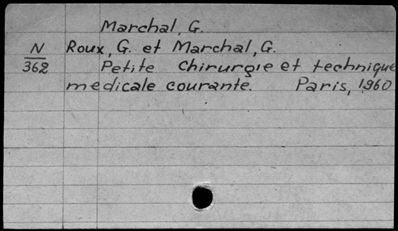 Marchal, G.
N Roux, G. et Marchal, G.
362 Petite Chirurgie et technique
medicale courante. Paris, 1960